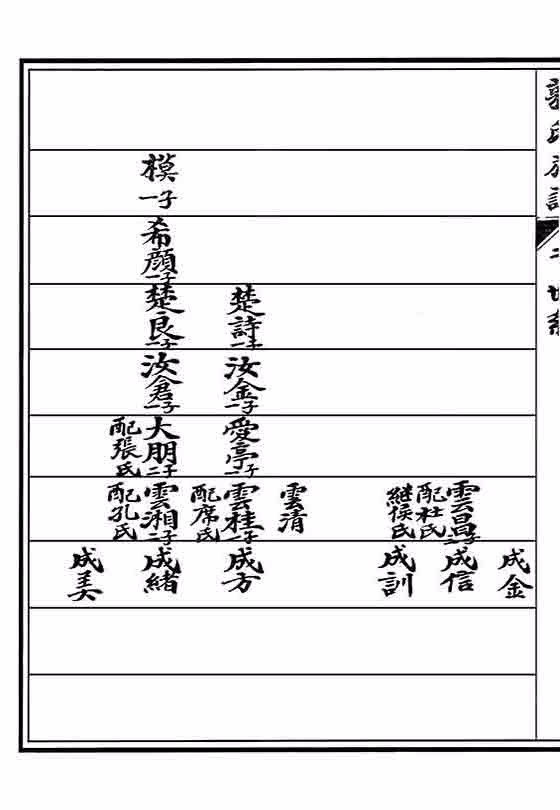 模一子
希顏一子
楚詩一子
楚良一子
汝金一子
汝倉一子
愛亭
大朋
配張氏
雲昌
配杜氏
継侯氏
雲清
雲桂一子
配席氏
雲湘二子
配孔氏
成金
成信
成訓
成方
成緒
成美